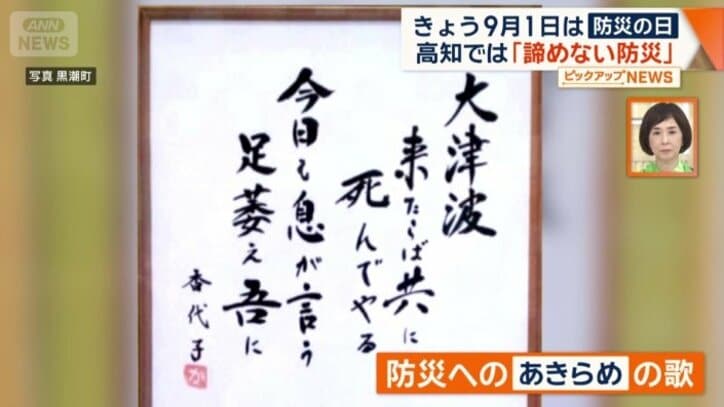 ANN NEWS
写真 黒潮町
きょう9月1日は 防災の日
高知では「諦めない防災」
ピックアップNEWS
大津波
来たらば共に
死んでやる
今日も息が言う
足萎え吾に
香代子
か
防災への あきらめ の歌